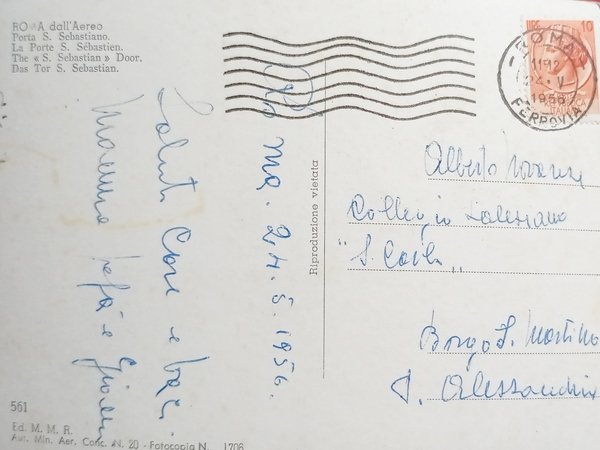 RO A dall'Aereo
Porta S. Sebastiano.
La Porte S. Sébastien.
The « S. Sebastian » Door.
Das Tor S. Sebastian.
Roma. 24.5.1956.
Saluti Cari e baci
Mamma papà e
Riproduzione vietata
10
ROMA
11-12
24.V
1956
FERROVIA
Alberto
Collegio Salesiano
"S. Carlo"
Borgo S. Martino
P. Alessandria
561
Ed. M. M. R.
Aut. Min. Aer. Conc. N. 20 - Fotocopia N. 1706